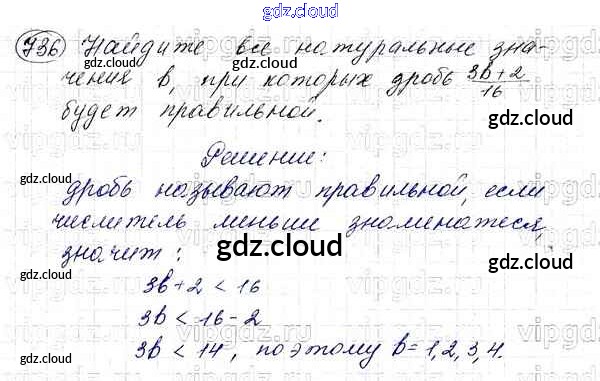 gdz.cloud
736 Найдите все натуральные зна-
чения b, при которых дробь (3b+2)/16
будет правильной.
Решение:
дробь называют правильной, если
числитель меньше знаменателя,
значит:
3b+2 < 16
3b < 16-2
3b < 14, поэтому b=1,2,3,4.
gdz.cloud
gdz.cloud
gdz.cloud
gdz.cloud
gdz.cloud
gdz.cloud
gdz.cloud
gdz.cloud
gdz.cloud